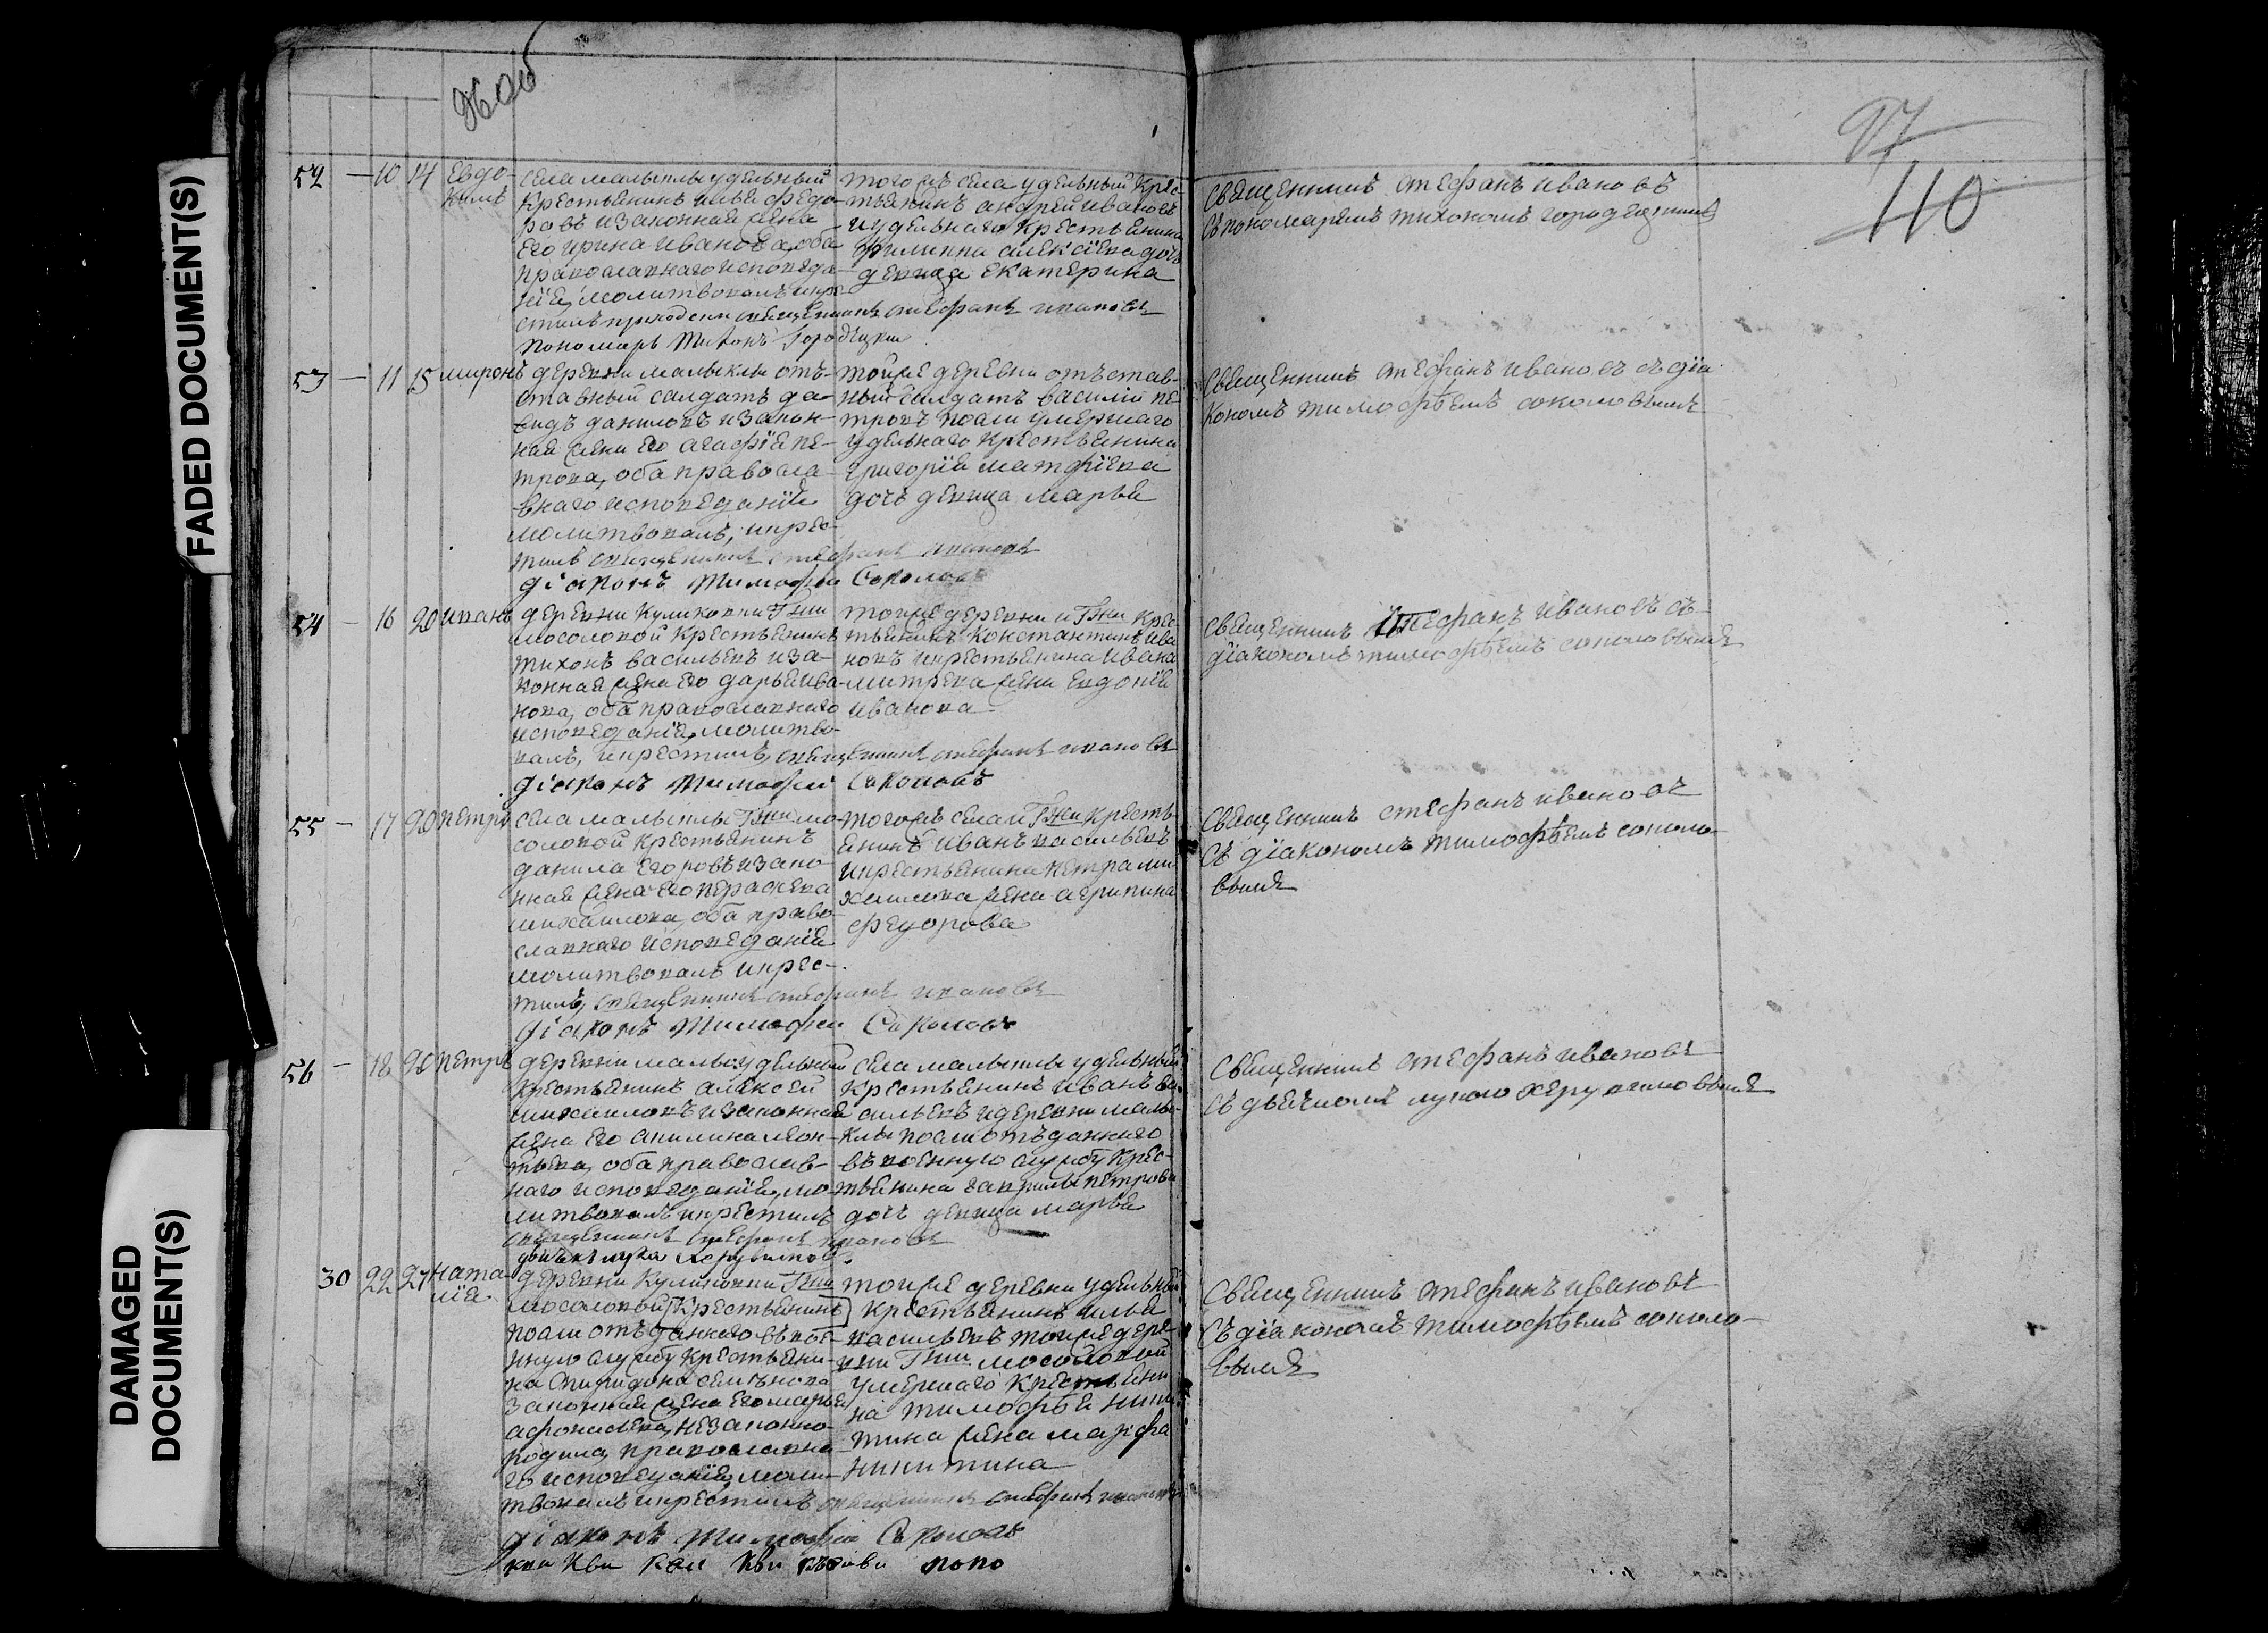 FADED DOCUMENT(S)
DAMAGED
DOCUMENT(S)
97
110
52 — 10 14 Евдо-
кимъ
села малыклы удельный
крестьянинъ илья федо-
ровъ изаконная жена
Его ирина иванова, оба
православнаго исповеда-
нiя, молитвовалъ икре-
стилъ приходски священникъ стефанъ ивановъ
пономарь Тихонъ Городецки
тогожъ села удельный крес-
тьянинъ андрей ивановъ
иудельнаго крестьянина
филиппа алексiева дочь
девица екатерина
священникъ стефанъ ивановъ
съ пономаремъ тихономъ городецкимъ
53 — 11 15 миронъ
деревни малыклы отъ-
ставный салдатъ да-
видъ даниловъ изакон-
ная жена Его агафiя пе-
трова, оба правосла-
внаго исповеданiя
молитвовалъ, икрес-
тилъ священникъ стефанъ ивановъ
дiаконъ Тимофеи Соколовъ
тойже деревни отъстав-
ный салдатъ василiи пе-
тровъ посли умершаго
удельнаго крестьянина
григорiя матфiева
дочь девица марья
священникъ стефанъ ивановъ съ дiа-
кономъ тимофѣемъ соколовымъ
54 — 16 20 иванъ
деревни куликовки Гжи
мосоловой крестьянинъ
тихонъ васильевъ иза-
конная жена Его дарья ива-
нова, оба православнаго
исповеданiя, молитво-
валъ, икрестилъ, священникъ стефанъ ивановъ
дiаконъ Тимофеи Соколовъ
тоиже деревни и Гжи крес-
тьянинъ константинъ ива-
новъ икрестьянина ивана
митрева жена евдокiя
иванова
священникъ стефанъ ивановъ съ
дiакономъ тимофѣемъ соколовымъ
55 — 17 20 петръ
села малыклы Гжи мо-
соловой крестьянинъ
данила Егоровъ изако-
нная жена Его
михаилова, оба право-
славнаго исповеданiя
молитвовалъ икрес-
тилъ, священникъ стефанъ ивановъ
дiаконъ Тимофеи Соколовъ
тогожъ села и Гжи кресть-
янинъ иванъ васильевъ
икрестьянина петра ми-
хаилова жена агрипина
федорова
священникъ стефанъ ивановъ
съ дiакономъ тимофѣемъ соколо-
вымъ
56 — 18 20 петръ
деревни удельный
крестьянинъ алексей
михаиловъ изаконная
жена Его акилина леон-
тьева, оба православ-
наго исповеданiя, мо-
литвовалъ икрестилъ
священникъ стефанъ ивановъ
дьячекъ лука херувимовъ
села малыклы удельный
крестьянинъ иванъ ва-
сильевъ идеревни малы-
клы посли отъданнаго
въ военную службу крес-
тьянина гаврилы петрова
дочь девица марья
священникъ стефанъ ивановъ
съ дьячкомъ лукою херувимовымъ
30 22 27 ната-
лiя
деревни куликовки Гжи
мосоловой крестьянинъ
посли отъданнаго въ вое-
нную службу крестьяни-
на спиридона семенова
законная жена Его марья
афонасьева, незаконно-
родила, православна-
го исповеданiя, моли-
твовалъ икрестилъ священникъ стефанъ ивановъ
дiаконъ Тимофеи Соколовъ
тоиже деревни удельный
крестьянинъ илья
васильевъ тоиже дере-
вни Гжи мосоловой
умершаго крестьяни-
на тимофѣя ники-
тина жена марфа
никитина
священникъ стефанъ ивановъ
съ дiакономъ тимофѣемъ соколо-
вымъ